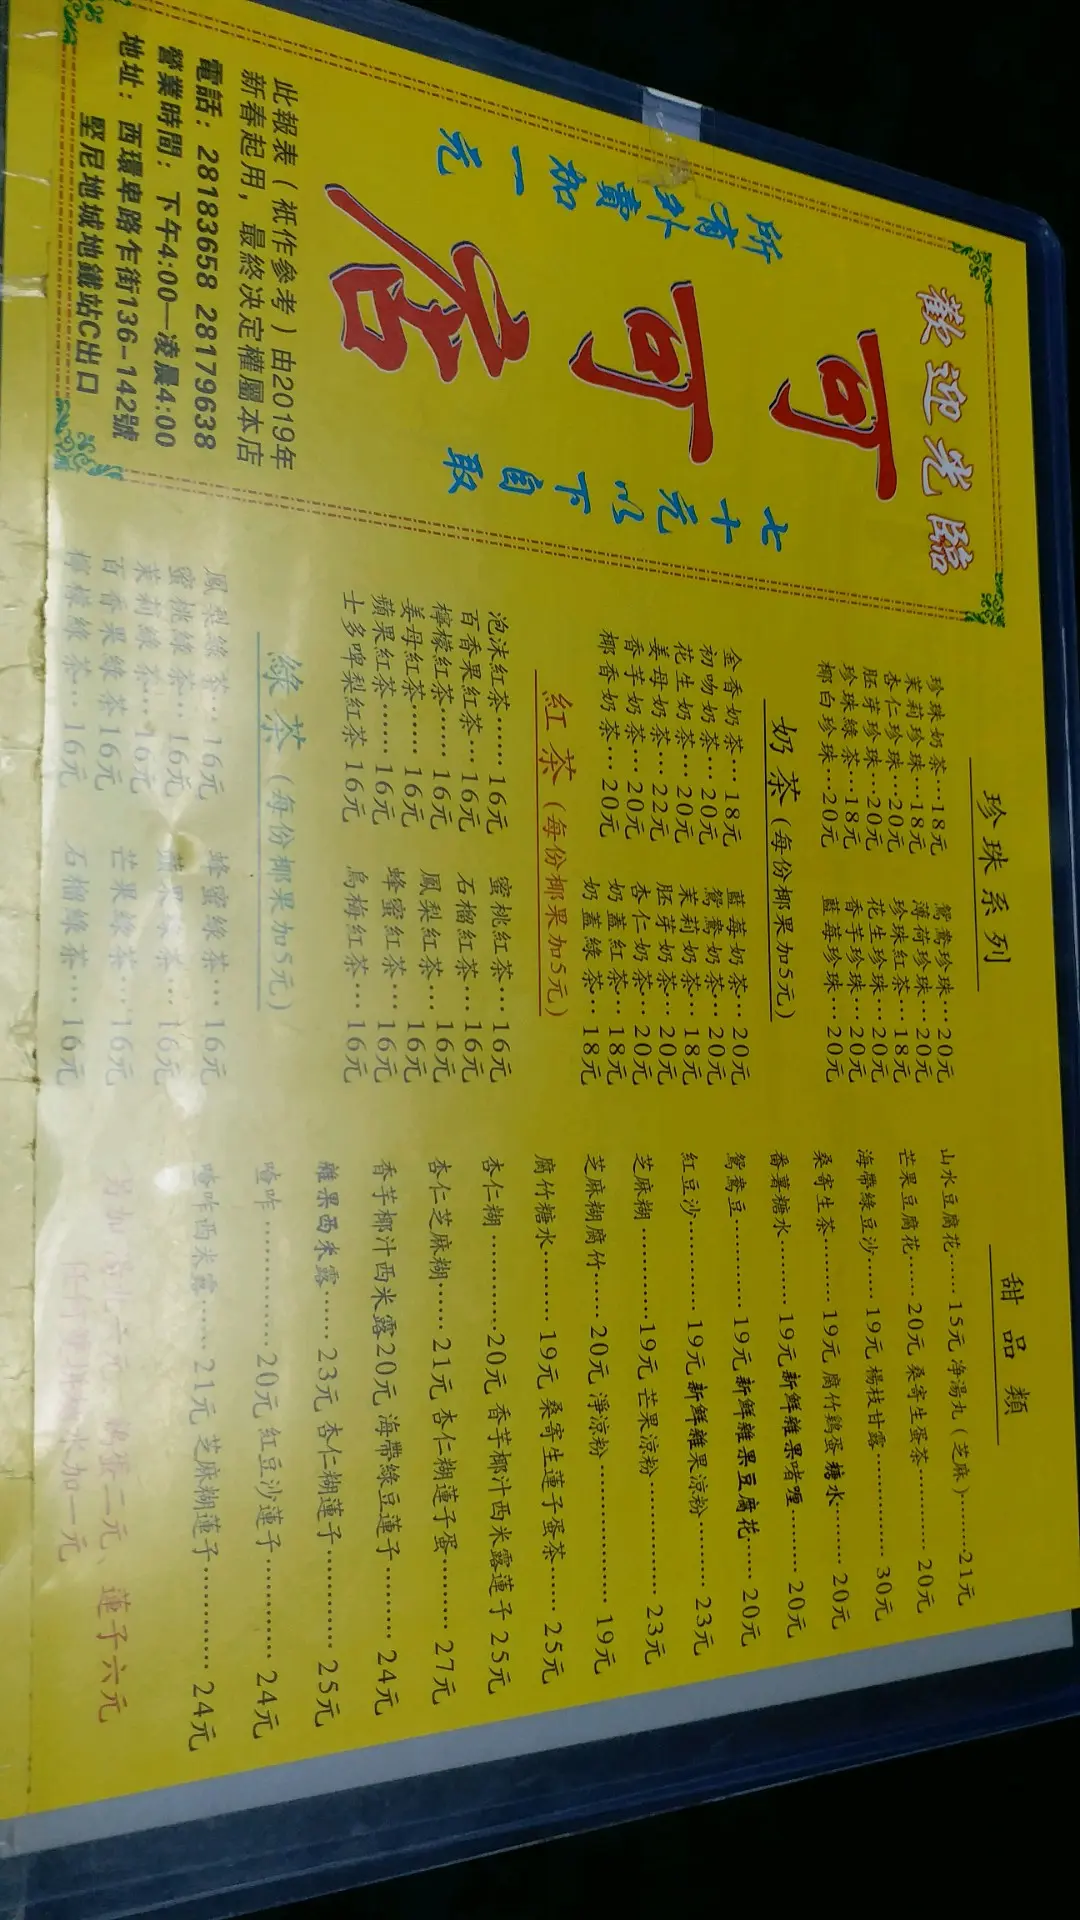 歡迎光臨
可可店
所有外賣加一元
七十元以下自取
此報表（衹作參考）由2019年
新春起用，最終決定權屬本店
電話：28183658 28179638
營業時間：下午4:00—凌晨4:00
地址：西環卑路乍街136-142號
堅尼地城地鐵站C出口
珍珠系列
珍珠奶茶…18元 鴛鴦珍珠…20元
茉莉珍珠…18元 薄荷珍珠…20元
杏仁珍珠…20元 珍珠紅茶…18元
胚芽珍珠…20元 花生珍珠…20元
珍珠綠茶…18元 香芋珍珠…20元
椰白珍珠…20元 藍莓珍珠…20元
奶茶（每份椰果加5元）
金香奶茶…18元 藍莓奶茶…20元
初吻奶茶…20元 鴛鴦奶茶…20元
花生奶茶…20元 茉莉奶茶…18元
姜母奶茶…22元 胚芽奶茶…20元
香芋奶茶…20元 杏仁奶茶…20元
椰香奶茶…20元 奶蓋紅茶…18元
奶蓋綠茶…18元
紅茶（每份椰果加5元）
泡沫紅茶……16元 蜜桃紅茶…16元
百香果紅茶…16元 石榴紅茶…16元
檸檬紅茶……16元 鳳梨紅茶…16元
姜母紅茶……16元 蜂蜜紅茶…16元
蘋果紅茶……16元 烏梅紅茶…16元
士多啤梨紅茶 16元
綠茶（每份椰果加5元）
鳳梨綠茶…16元 蜂蜜綠茶…16元
蜜桃綠茶…16元 蘋果綠茶…16元
茉莉綠茶…16元 芒果綠茶…16元
百香果綠茶16元 石榴綠茶…16元
檸檬綠茶…16元
甜品類
山水豆腐花……15元 净湯丸（芝麻）……21元
芒果豆腐花……20元 桑寄生蛋茶…………20元
海帶綠豆沙……19元 楊枝甘露……………30元
桑寄生茶………19元 腐竹鷄蛋糖水………20元
番薯糖水………19元 新鮮雜果啫喱………20元
鴛鴦豆…………19元 新鮮雜果豆腐花……20元
紅豆沙…………19元 新鮮雜果涼粉………23元
芝麻糊…………19元 芒果涼粉……………23元
芝麻糊腐竹……20元 淨涼粉………………19元
腐竹糖水………19元 桑寄生蓮子蛋茶……25元
杏仁糊…………20元 香芋椰汁西米露蓮子 25元
杏仁芝麻糊……21元 杏仁糊蓮子蛋………27元
香芋椰汁西米露20元 海帶綠豆蓮子………24元
雜果西米露……23元 杏仁糊蓮子…………25元
喳咋……………20元 紅豆沙蓮子…………24元
喳咋西米露……21元 芝麻糊蓮子…………24元
蓮子六元
水加一元